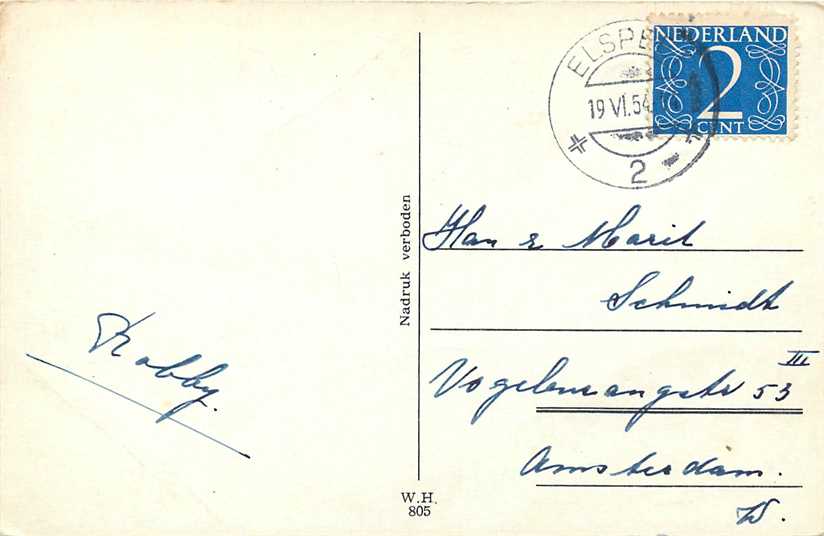 ELSPE
19 VI.54
2
NEDERLAND
2
CENT
Nadruk verboden
Han & Marit
Schmidt
III
Vogelenzangstr 53
Amsterdam.
W.
Robby.
W.H.
805